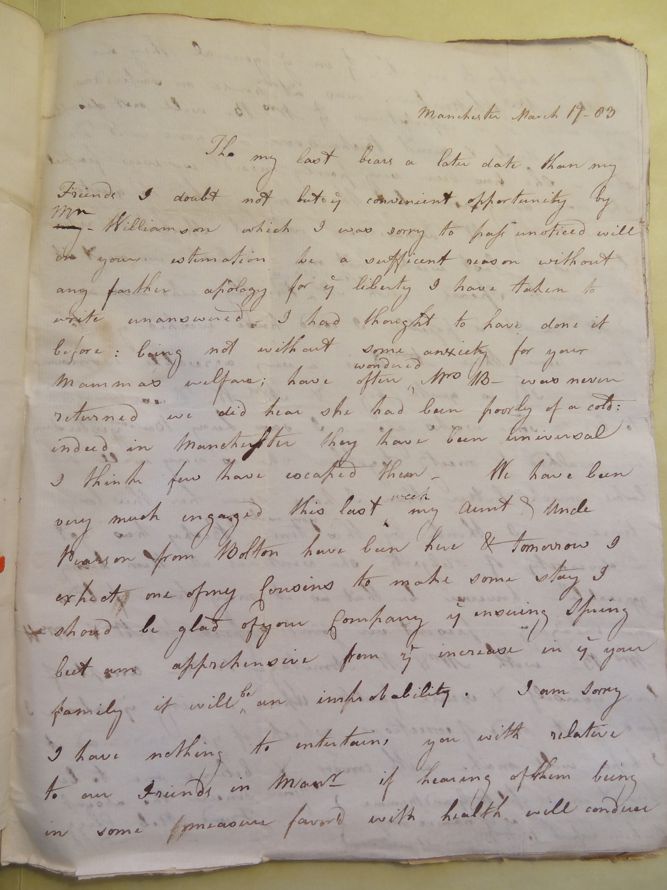 Manchester March 17 - 03
Tho my last bears a later date than my
Friends I doubt not but ye convenient opportunity by
Mrs
Williamson which I was sorry to pass unoticed will
in your estimation be a sufficent reason without
any farther apology for ye liberty I have taken to
write unanswered. I had thought to have done it
before: being not without some anxiety for your
wondered
Mammas welfare; have often ^ Mrs B- was never
returned we did hear she had been poorly of a cold:
indeed in Manchester they have been universal
I think few have escaped them - We have been
week
very much engaged this last ^ my Aunt & Uncle
Pearson from Bolton have been here & tomorrow I
expect one of my Cousins to make some stay I
should be glad of your Company ye ensuing Spring
but am apprehensive from ye increase in ye your
be
family it will ^ an improbability. I am sorry
I have nothing to entertain you with relative
to our Friends in Manr if hearing of them being
in some measure favord with health will conduce